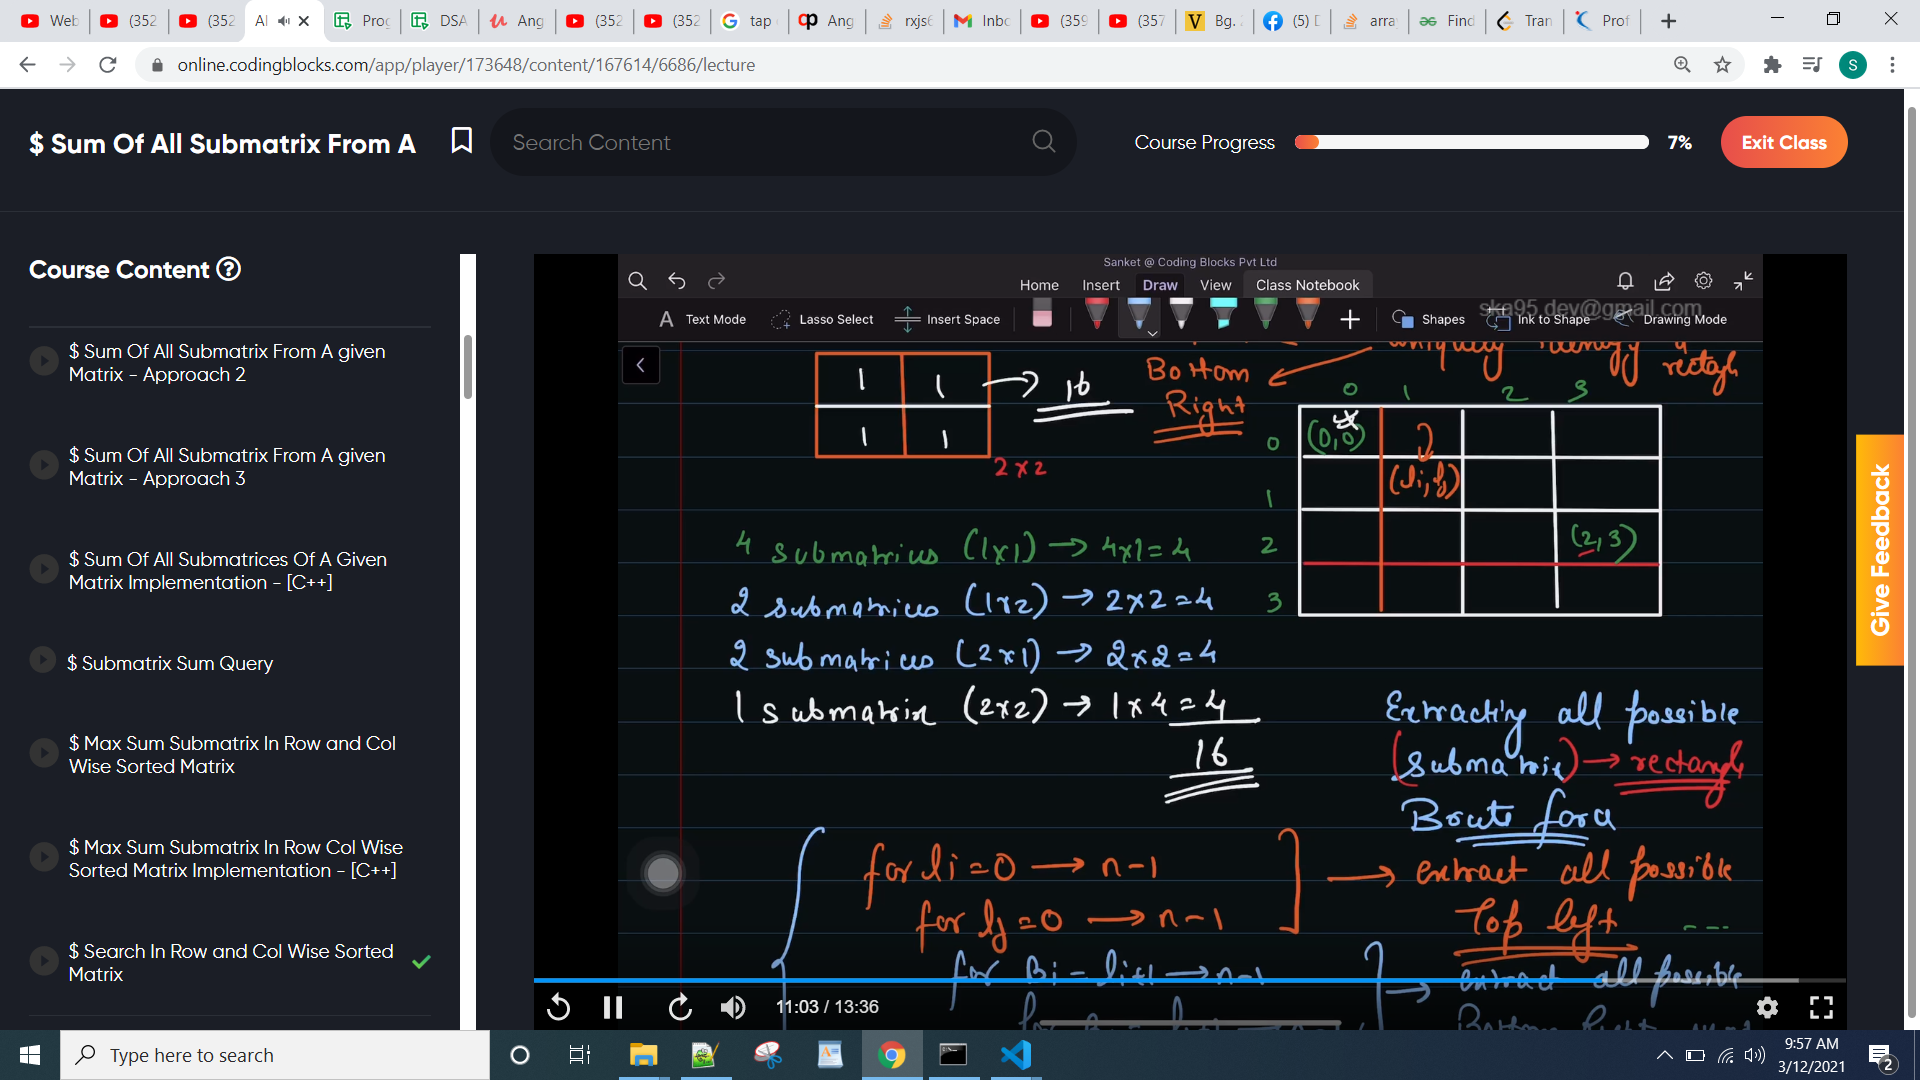 Web
(352
(352
Al
Prog
DSA
Ang
(352
(352
tap
Ang
rxjs6
Inbo
(359
(357
Bg.
(5)
arra
Find
Tran
Prof
online.codingblocks.com/app/player/173648/content/167614/6686/lecture
S
$ Sum Of All Submatrix From A
Search Content
Course Progress
7%
Exit Class
Course Content
$ Sum Of All Submatrix From A given
Matrix - Approach 2
$ Sum Of All Submatrix From A given
Matrix - Approach 3
$ Sum Of All Submatrices Of A Given
Matrix Implementation - [C++]
$ Submatrix Sum Query
$ Max Sum Submatrix In Row and Col
Wise Sorted Matrix
$ Max Sum Submatrix In Row Col Wise
Sorted Matrix Implementation - [C++]
$ Search In Row and Col Wise Sorted
Matrix
Sanket @ Coding Blocks Pvt Ltd
Home Insert Draw View Class Notebook
ska95.dev@gmail.com
Text Mode Lasso Select Insert Space Shapes Ink to Shape Drawing Mode
uniquely identify a
rectagle
Bottom
Right
1 1
1 1
16
2x2
0 1 2 3
0
1
2
3
(0,0)
(li,lj)
(2,3)
4 submatrices (1x1) → 4x1=4
2 submatrices (1x2) → 2x2=4
2 submatrices (2x1) → 2x2=4
1 submatrix (2x2) → 1x4=4
16
Extracting all possible
(submatrix) → rectangle
Brute force
for li=0 → n-1
for lj=0 → n-1
→ extract all possible
Top left
for Bi=li+1 → n-1
→ extract all possible
Bottom Right
11:03 / 13:36
Give Feedback
Type here to search
9:57 AM
3/12/2021
2